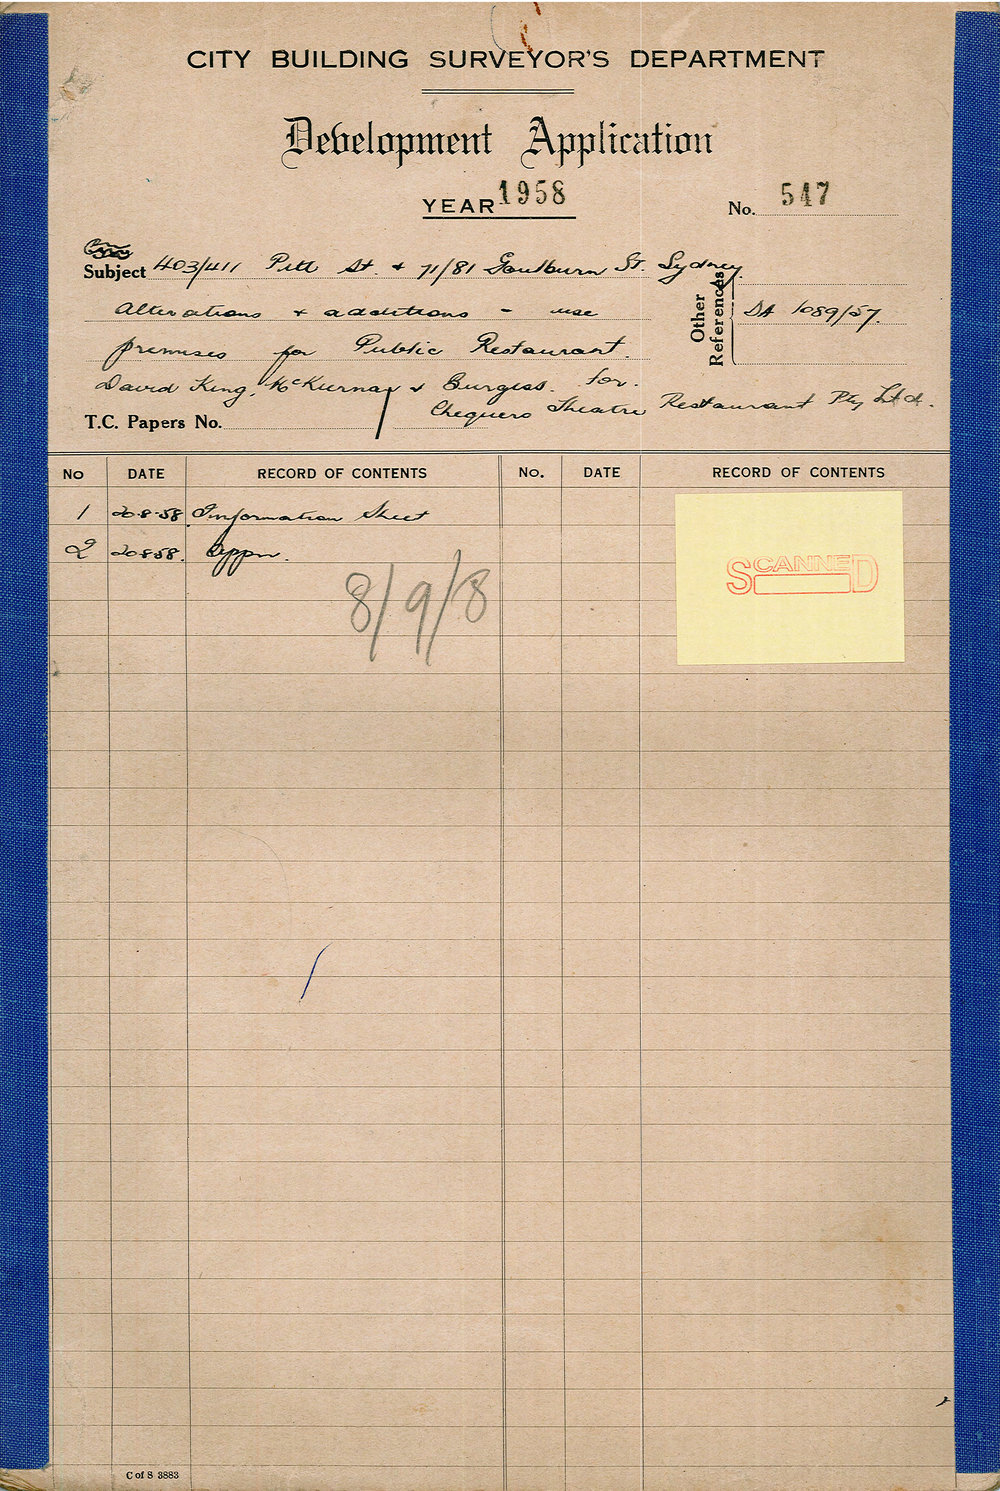 CITY BUILDING SURVEYOR'S DEPARTMENT
Development Application
YEAR 1958
No. 547
Subject 403/411 Pitt St. & 71/81 Goulburn St. Sydney.
Alterations & additions - use
premises for Public Restaurant.
Other References DA 1089/57.
David King, McKiernan & Burgess. for.
Chequers Theatre Restaurant Pty Ltd.
T.C. Papers No.
No DATE RECORD OF CONTENTS No. DATE RECORD OF CONTENTS
1 20-8-58 Information Sheet
2 20858. Appn.
SCANNED
8/9/8
C of S 3883